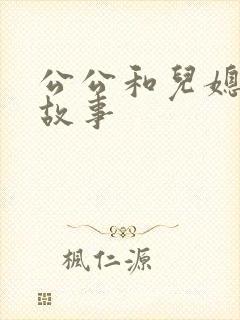 公公和兒媳
故事
楓仁源